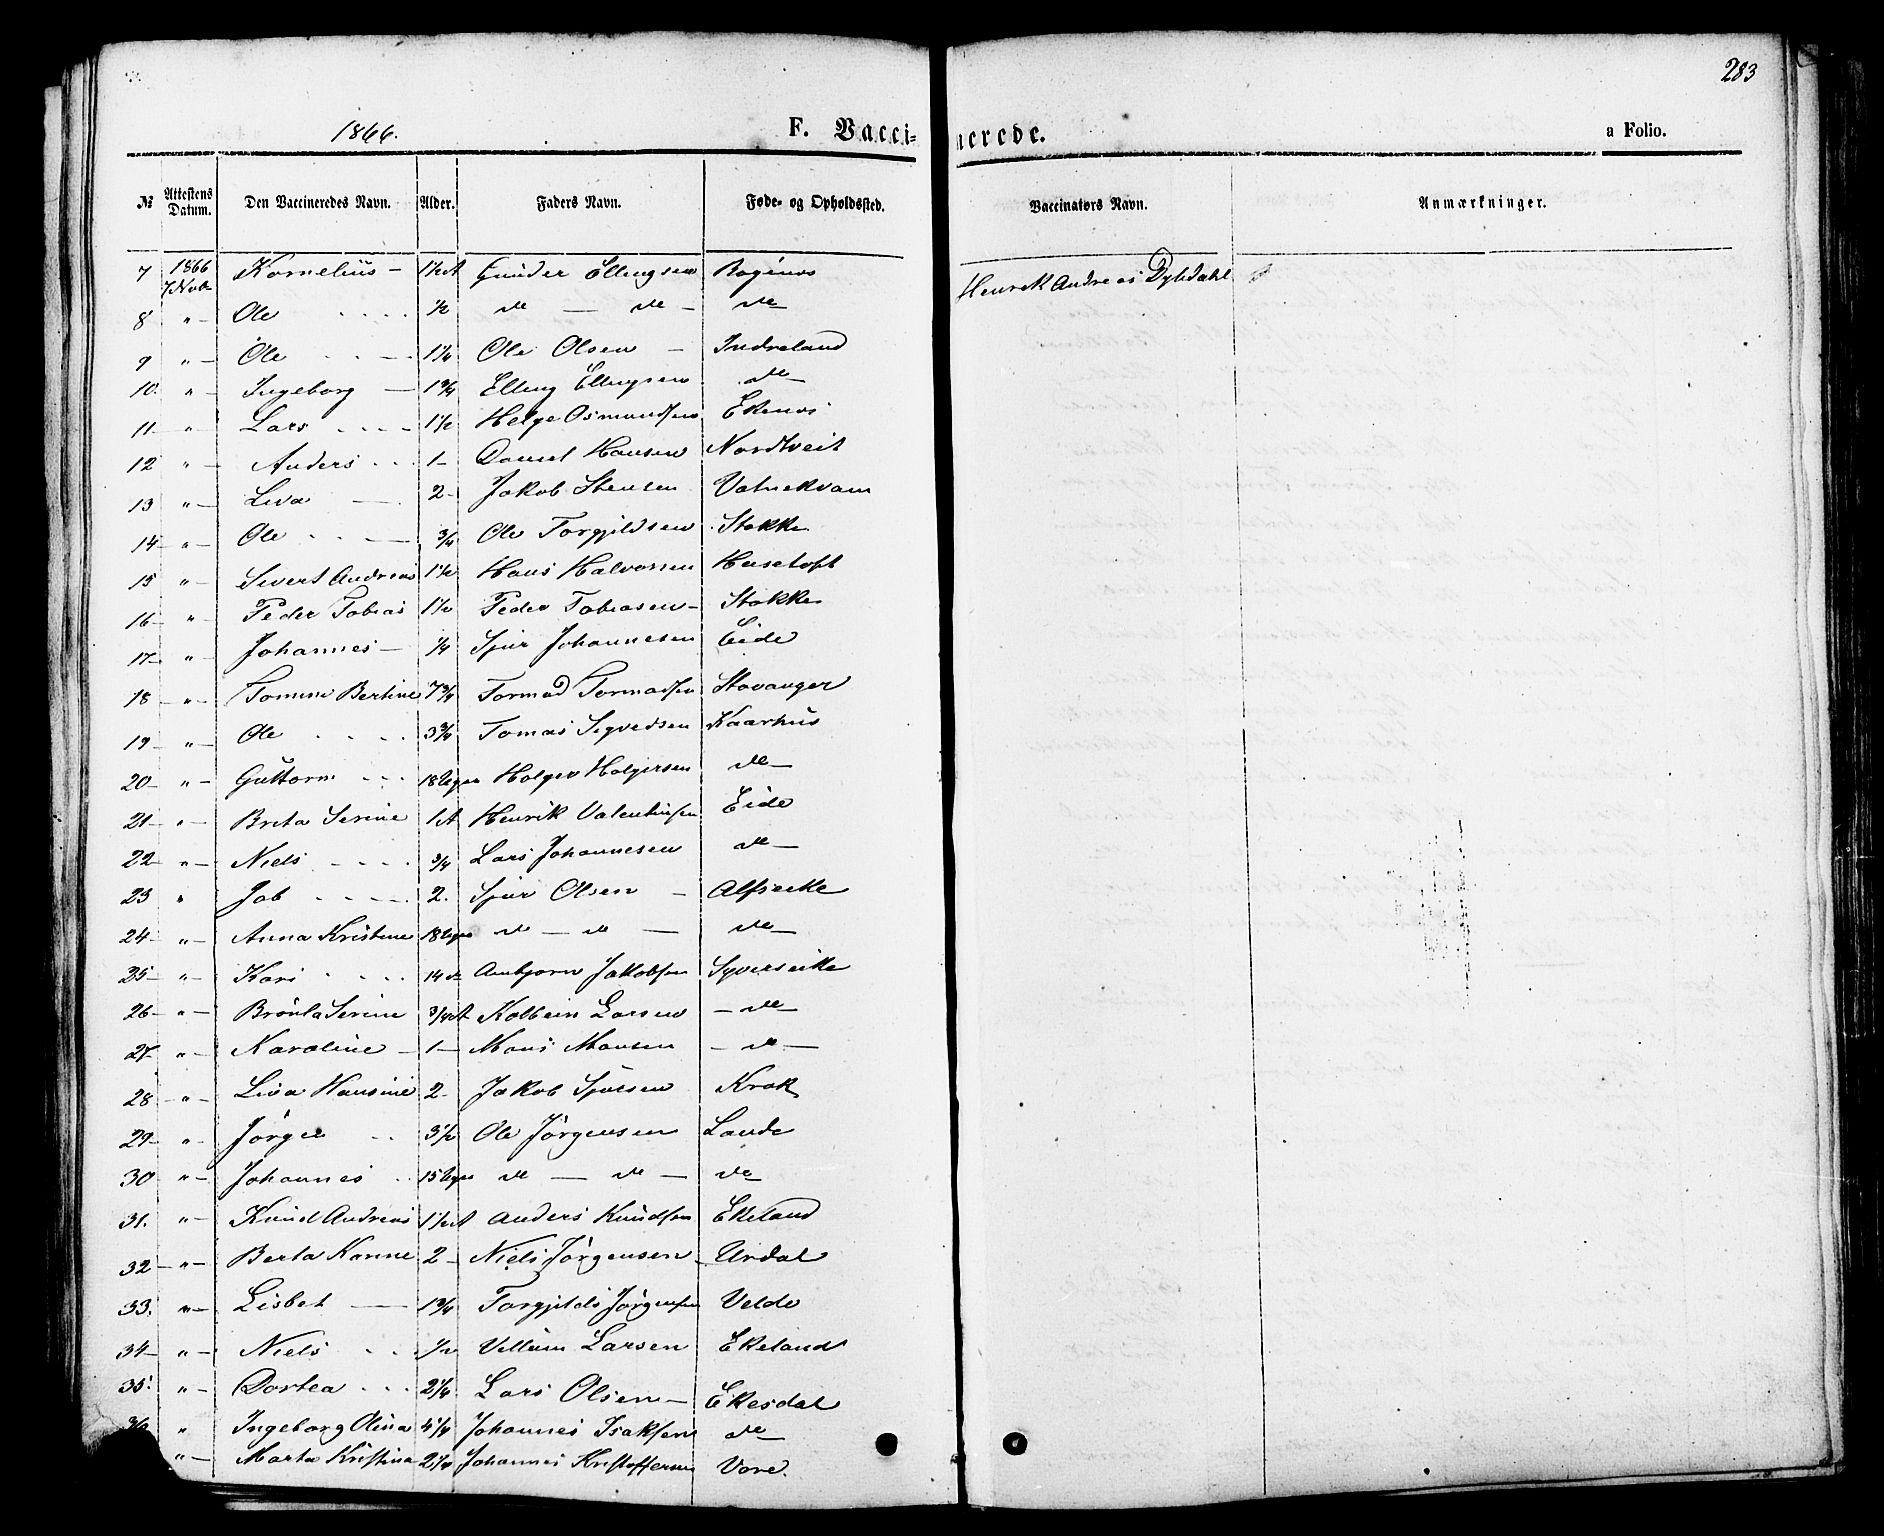 283
1866.
F. Vaccinerede.
a Folio.
№ Attestens Datum. Den Vaccineredes Navn. Alder. Faders Navn. Føde- og Opholdssted. Vaccinatørs Navn. Anmærkninger.
7 1866 7 Nov Kornelius 1½ A Gunder Ellingsen Henrik Andreas Dybdahl
8 " Ole ½ do do do
9 " Ole 1¼ Ole Olsen Indreland
10. " Ingeborg 1¾ Elling Ellingsen do
11 " Lars 1½ Helge Osmundsen Ekenes
12 " Anders 1 Daniel Hansen Nordtveit
13 " Liva 2 Jakob Stensen Vatnekvam
14 " Ole ¾ Ole Torgjildsen Stokke
15 " Sivert Andreas 1½ Hans Halvorsen Husetoft
16 " Peder Tobias 1½ Peder Tobiasen Stokke
17 " Johannes ¼ Sjur Johannesen Eide
18 " Tomine Bertine 7¾ Tormod Tormodsen Stavanger
19 " Ole 3¾ Tomas Sigvedsen Kaarhus
20 " Guttorm 18 Uger Holger Holgersen do
21 " Brita Serine 1 A Henrik Valentinsen Eide
22 " Niels ¾ Lars Johannesen do
23 " Job 2. Sjur Olsen Alfseike
24 " Anna Kristine 18 Uger do do do
25 " Kari 14 do Annbjørn Jakobsen Syverseike
26 " Brønla Serine ¾ A Kolbein Larsen do
27 " Karoline 1 Mons Monsen do
28 " Liva Hansine 2 Jakob Sjursen Krak
29 " Jørgen 3½ Ole Jørgensen Lande
30 " Johannes 15 Uger do do do
31. " Knud Andreas 1½ A Anders Knudsen Ekeland
32 " Berta Karine 2 Niels Jørgensen Urdal
33. " Lisbet 1¾ Torgjilds Jørgensen Velde
34 " Niels ½ Villum Larsen Ekeland
35. " Dortea 2¼ Lars Olsen Ekesdal
36 " Ingeborg Olina 4¼ Johannes Isaksen do
" Marta Kristina 2¼ Johannes Kristoffersen Vore.